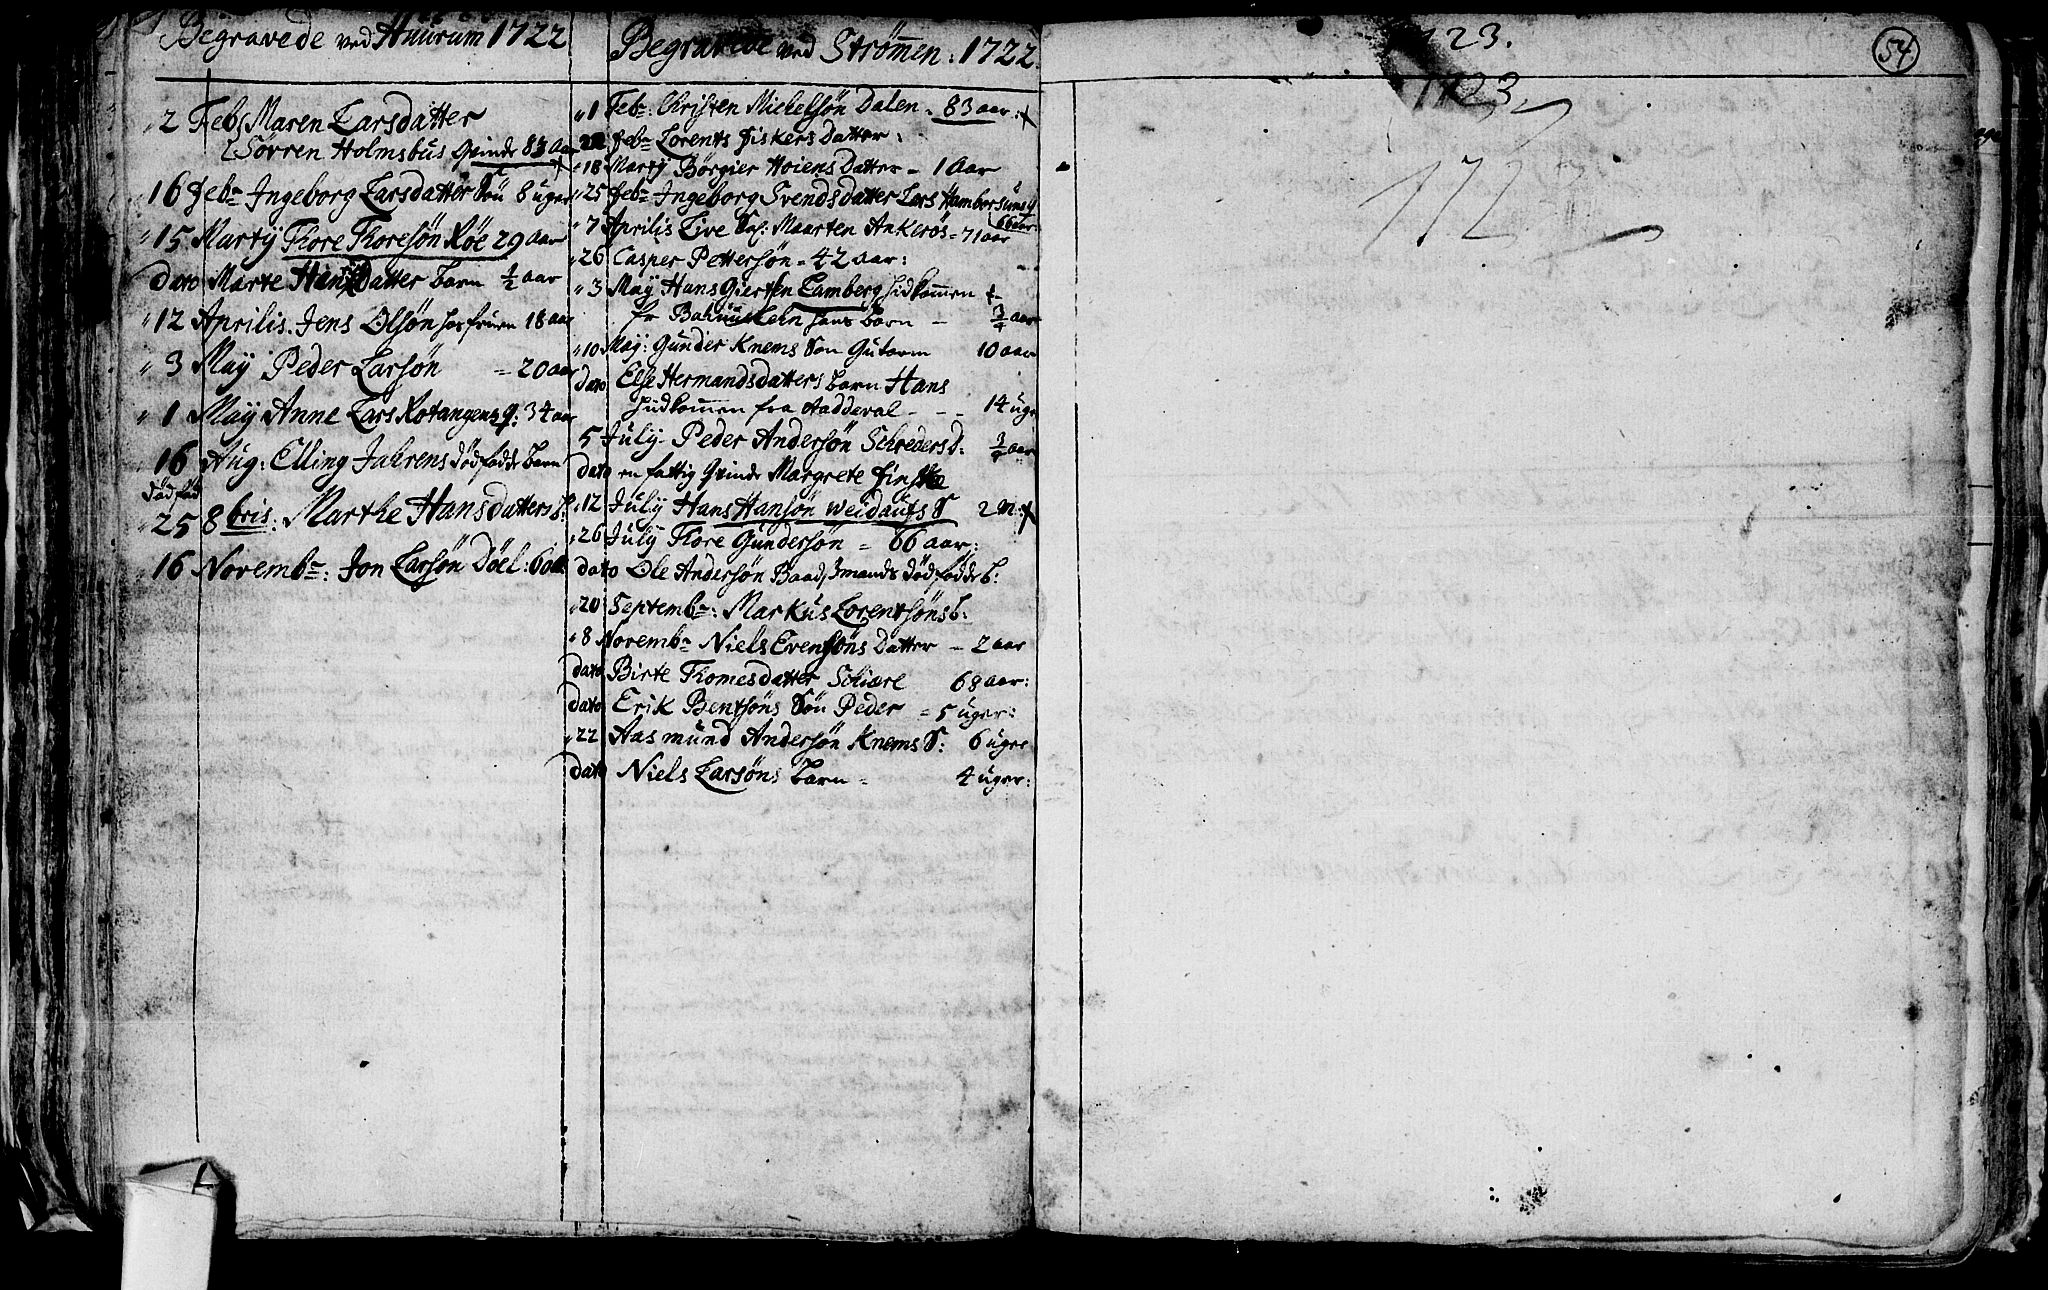 Begravede ved Huurum 1722
2 Feb: Maren Larsdatter
Sövren Holmsbus Qvinde 83 Aar
16 Feb: Ingeborg Larsdatter Sön 8 uger
15 Martÿ Thore Thoresön Röe 29 Aar
dato Marte Hansdatter barn ½ aar
12 Aprilis. Jens Olsön hos fruen 18 aar
3 Maÿ Peder Larsön = 20 aar
1 Maÿ Anne Lars Rotangens q: 34 aar
16 Aug: Elling Jahrens dödfödde barn
dödföd
25 8bris: Marthe Hansdatters b:
16 Novembr: Jon Larsön Döel: 60 a
Begravede ved Strömen: 1722
1 Feb: Christen Michelsön Dalen = 83 aar:
22 Feb: Lorents Fiskers Datter:
18 Martÿ Börgier Hoiens Datter = 1 Aar
25 Feb: Ingeborg Svendsdatter Lars Hambersuns q
66 aar:
7 Aprilis Live Sal: Maarten Ankerös = 71 aar
26 Casper Pettersön = 42 aar:
3 Maÿ Hans Giertsen Lamberg hidkommen
fr Bahuuslehn hans barn - ¾ aar
10 Maÿ: Gunder Knems Sön Gutorm 10 aar
dato Else Hermandsdatters barn Hans
hidkommen fra Aadderal - - - 14 uger
5 Julÿ Peder Andersön Schreders b: ¾ aar
dato en fattig Qvinde Margrete Finske
12 Julÿ Hans Hansön Weidaufs S 2 M:
26 Julÿ Thore Gundersön = 66 aar:
dato Ole Andersön Baadsmands dödfödde b:
20 Septembr: Markus Lorentsöns b:
8 Novembr Niels Evensöns Datter - 2 aar
dato Birte Thomesdatter Schiære 68 aar:
dato Erik Bentsöns Sön Peder = 5 uger:
22 Aasmund Andersön Knems S: 6 uger
dato Niels Larsöns barn = 4 uger:
1723.
54
1723
172